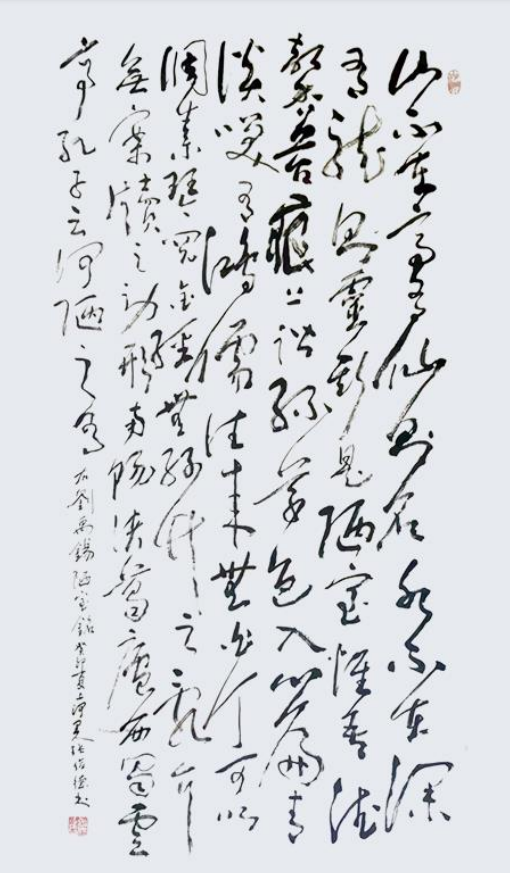 山不在高有仙則名水不在深
有龍則靈斯是陋室惟吾德
馨苔痕上階綠草色入簾青
談笑有鴻儒往來無白丁可以
調素琴閱金經無絲竹之亂耳
無案牘之勞形南陽諸葛廬西蜀雲
亭孔子云何陋之有 右劉禹錫陋室銘癸卯夏